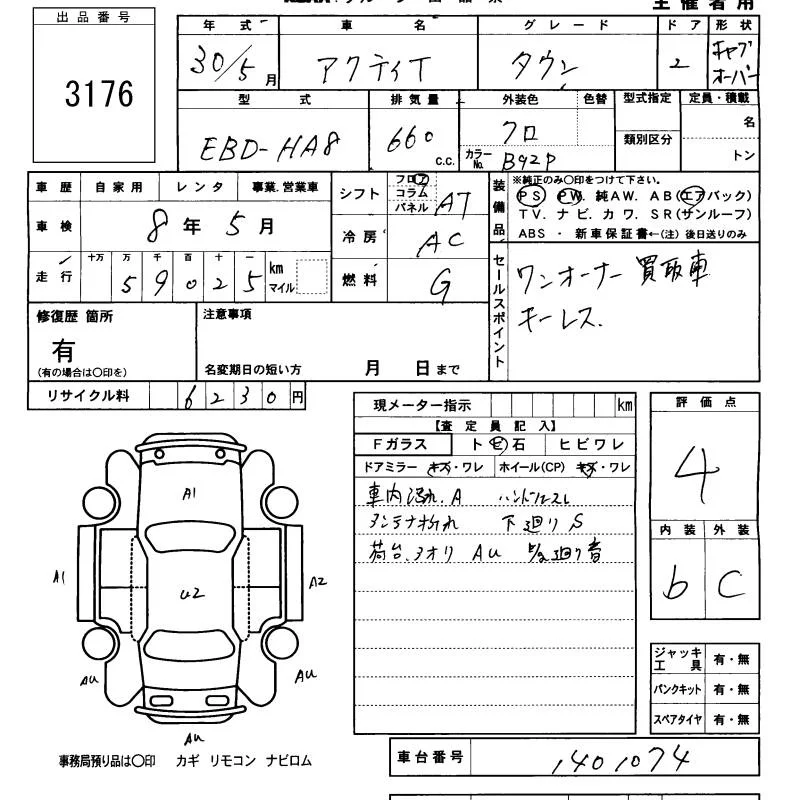 出品番号
3176
主催者用
年式 車名 グレード ドア 形状
30/5月 アクティT タウン 2 キャブオーバー
型式 排気量 外装色 色替 型式指定 定員・積載
EBD-HA8 660 C.C. クロ カラーNo. B92P 類別区分 名 トン
車歴 自家用 レンタ 事業.営業車
車検 8年 5月
走行 十万 万 千 百 十 一 km マイル
59025
シフト フロア コラム パネル AT
冷房 AC
燃料 G
装備品 ※純正のみ〇印をつけて下さい。
PS PW. 純AW. AB(エアバック)
TV. ナビ. カワ. SR(サンルーフ)
ABS ・ 新車保証書←(注) 後日送りのみ
セールスポイント
ワンオーナー 買取車
キーレス.
修復歴 箇所 注意事項
有
(有の場合は〇印を) 名変期日の短い方 月 日まで
リサイクル料 6230円
現メーター指示 km
【査定員記入】
Fガラス ト ビ 石 ヒビワレ
ドアミラー キズ・ワレ ホイール(CP) キズ・ワレ
車内汚れ. A ハンドルスレ
アンテナ折れ 下廻り S
荷台.アオリ AU 廻り音
評価点
4
内装 外装
b C
ジャッキ工具 有・無
パンクキット 有・無
スペアタイヤ 有・無
A1
A1 U2 A2
AU AU
AU
事務局預り品は〇印 カギ リモコン ナビロム
車台番号 1401074